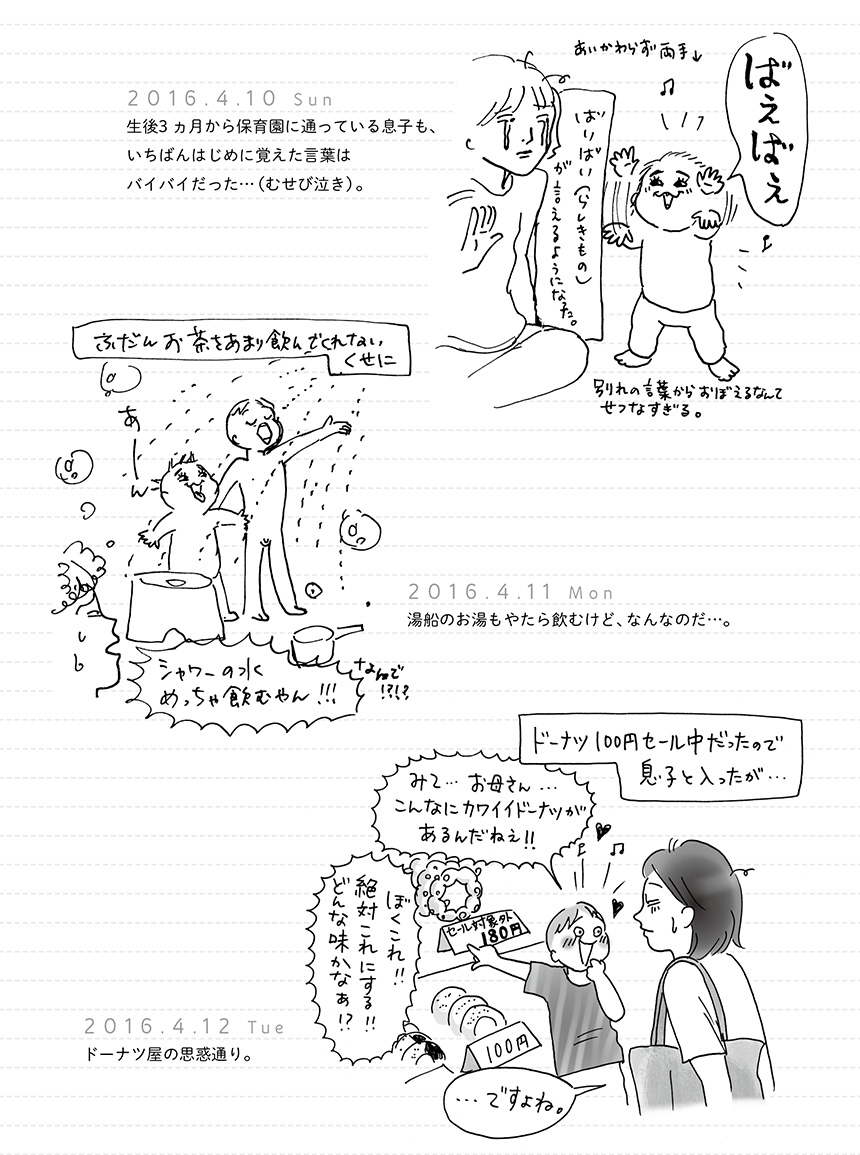 2016.4.10 Sun
生後3ヵ月から保育園に通っている息子も、
いちばんはじめに覚えた言葉は
バイバイだった…（むせび泣き）。
あいかわらず両手↓
ばえばえ
ばいばい（らしきもの）
が言えるようになった。
別れの言葉からおぼえるなんて
せつなすぎる。
ふだんお茶をあまり飲んでくれない
くせに
あーん
シャワーの水
めっちゃ飲むやん!!!
なんで
!?!?
2016.4.11 Mon
湯船のお湯もやたら飲むけど、なんなのだ…。
ドーナツ100円セール中だったので
息子と入ったが…
みて…お母さん…
こんなにカワイイドーナツが
あるんだねえ!!
ぼくこれ!!
絶対これにする!!
どんな味かなぁ!?
セール対象外
180円
100円
…ですよね。
2016.4.12 Tue
ドーナツ屋の思惑通り。